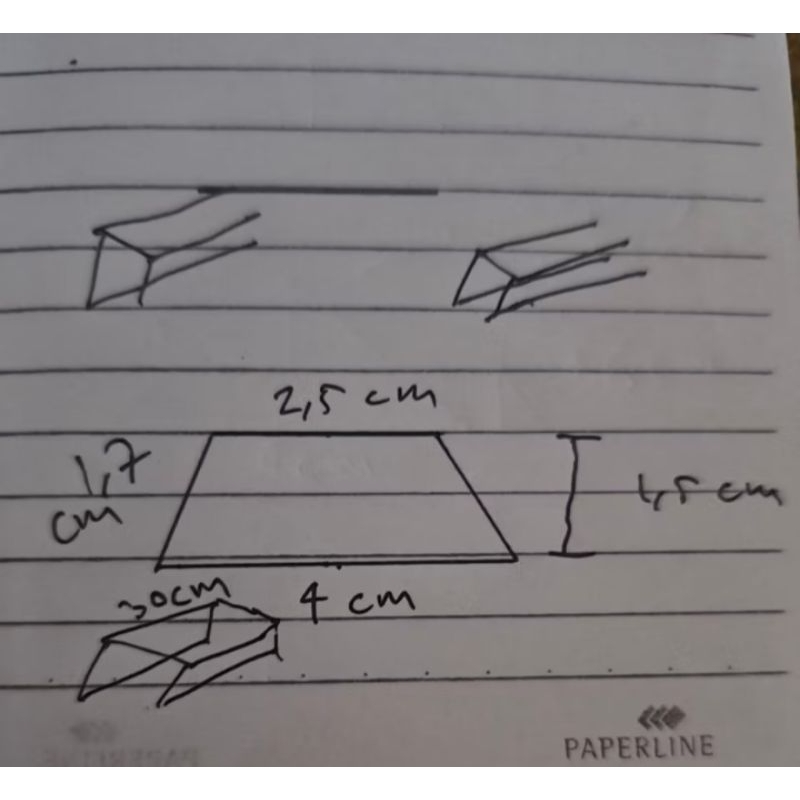 2,5 cm
1,7
cm
1,5 cm
30cm
4 cm
PAPERLINE